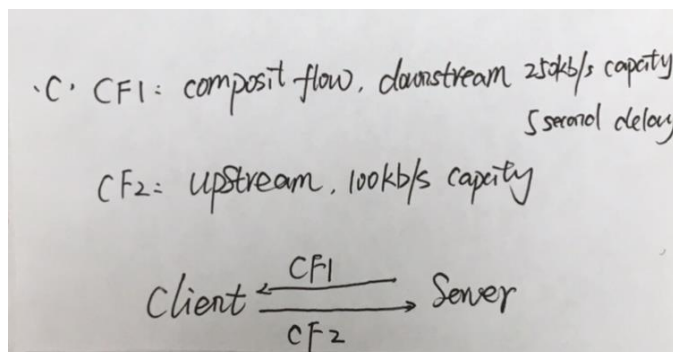 ·C· CF1: composit flow, downstream 250kb/s capcity
5 second delay
CF2: upstream, 100kb/s capcity
CF1
Client Server
CF2